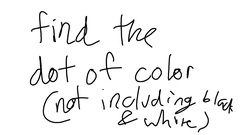 find the
dot of color
(not including black
& white)